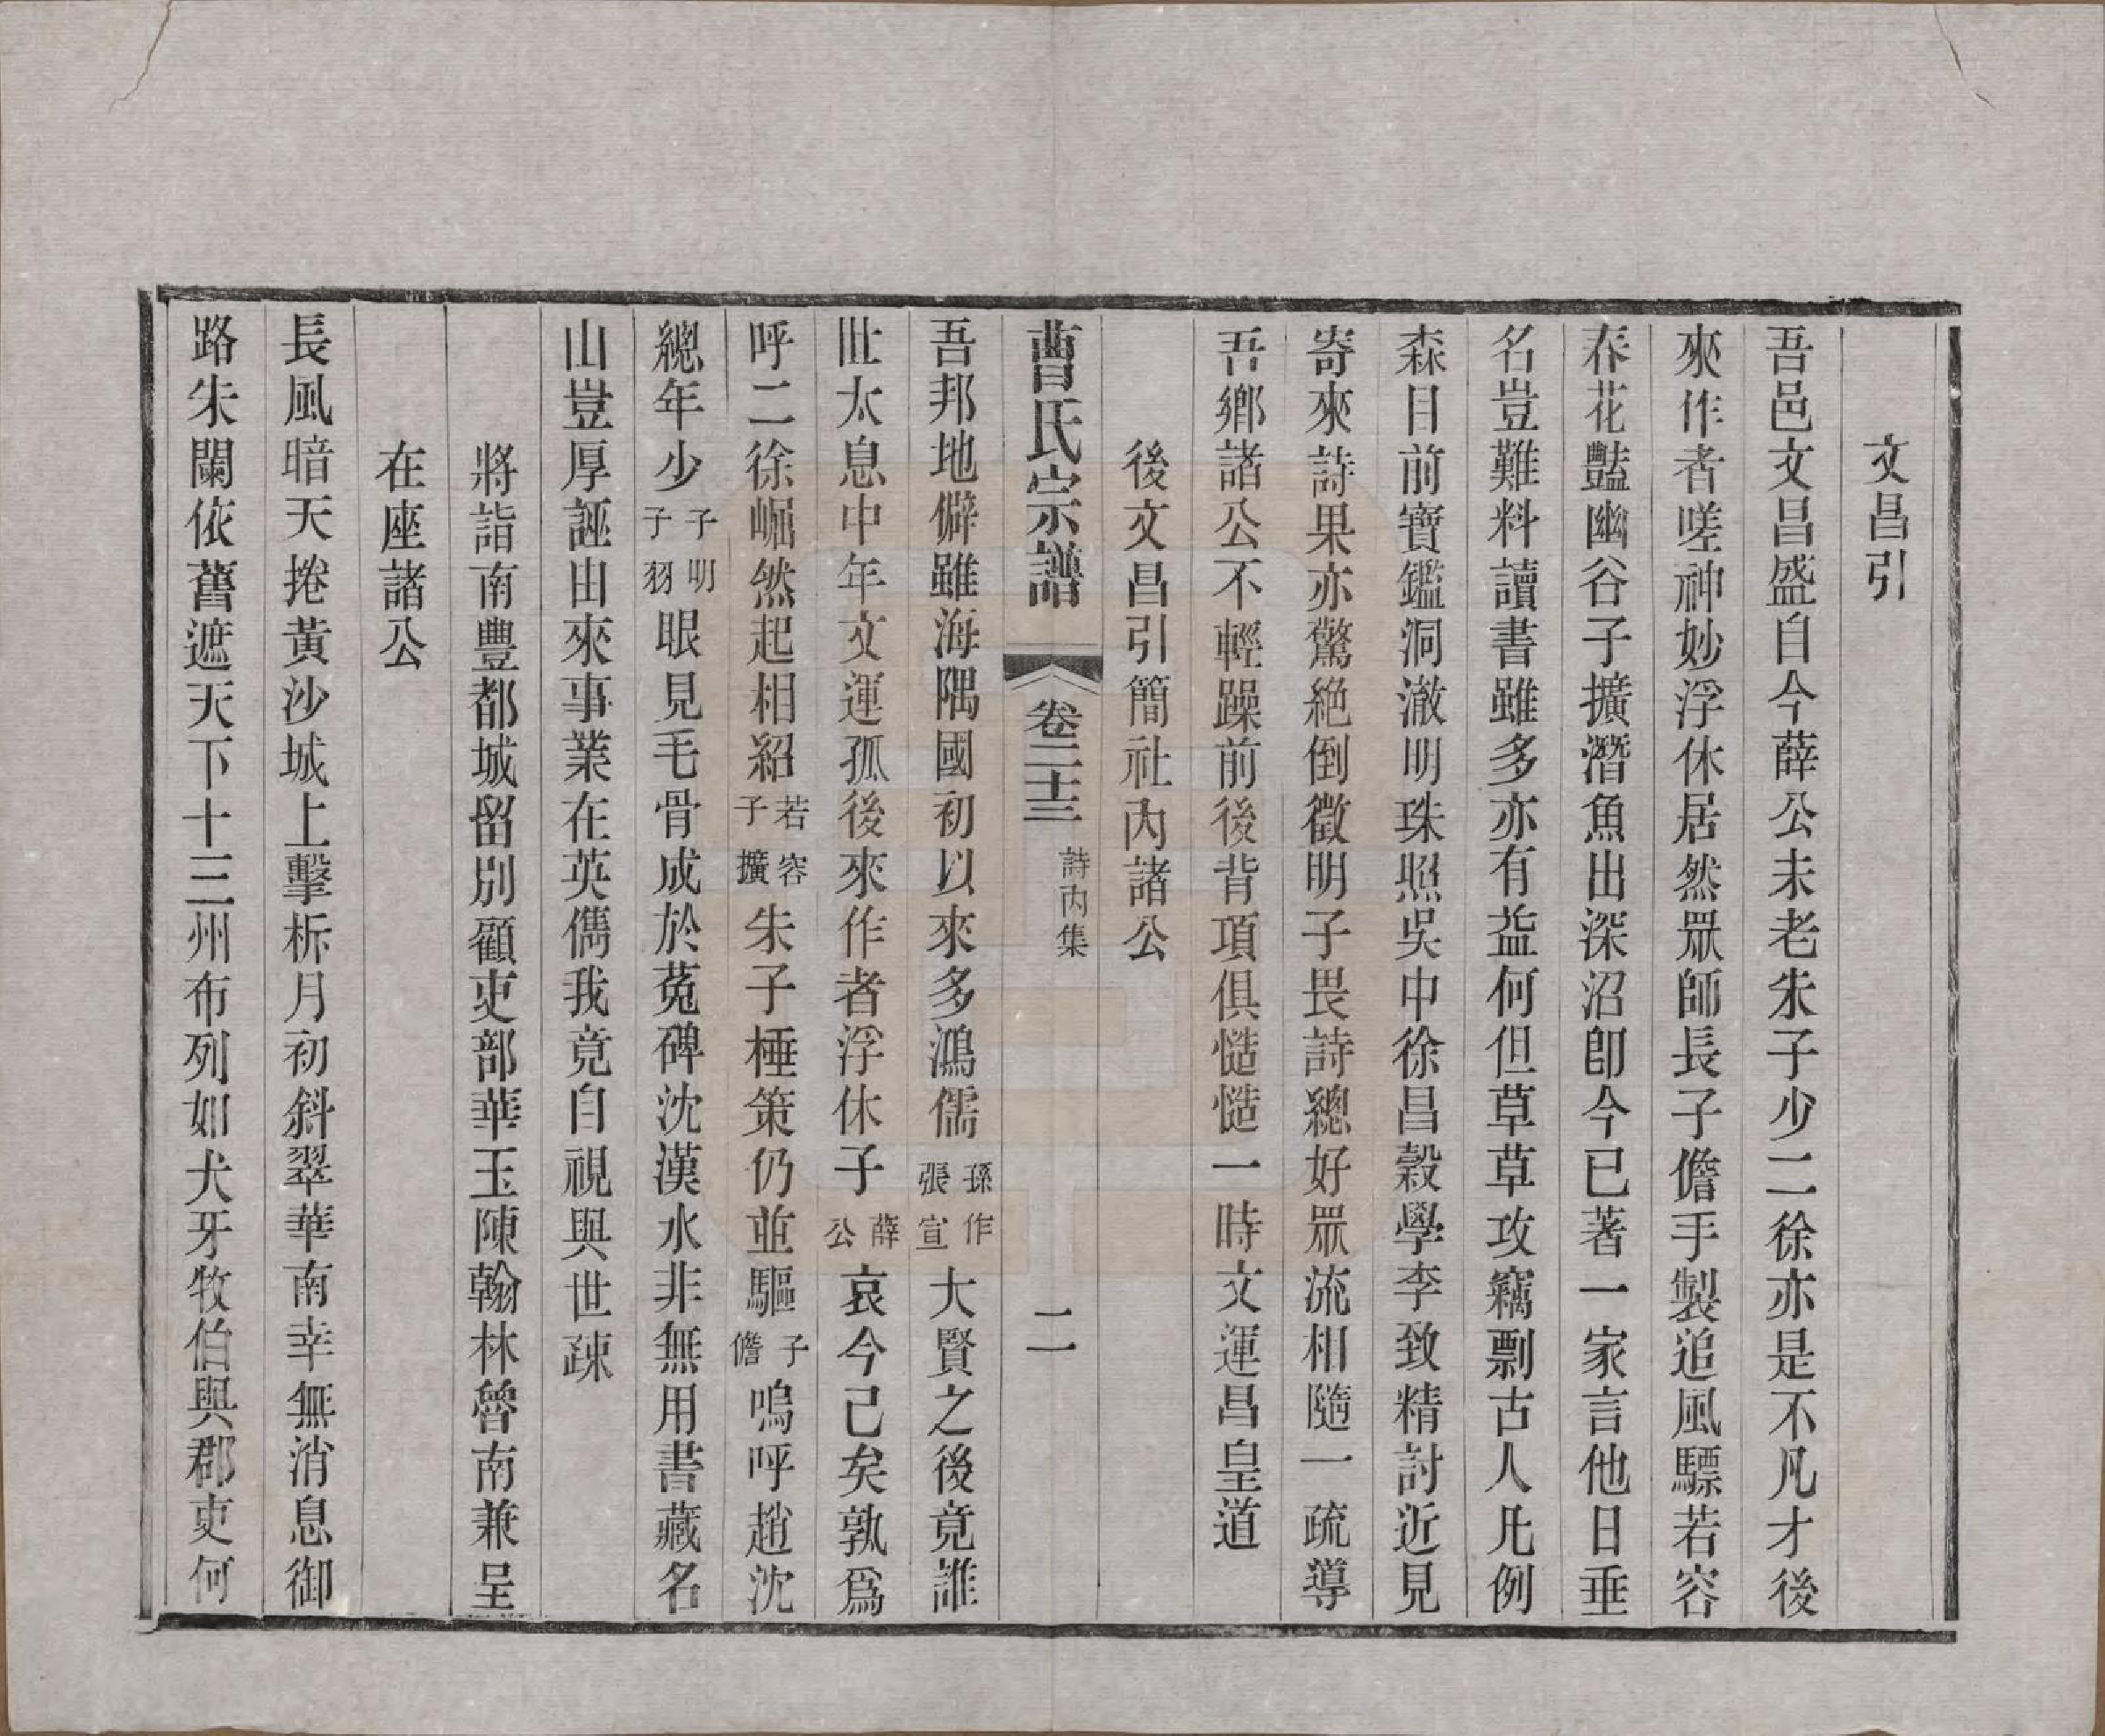 文昌引
吾邑文昌盛自今薛公未老朱子少二徐亦是不凡才後
來作者嗟神妙浮休居然眾師長子儋手製追風驃若容
春花豔幽谷子擴潛魚出深沼卽今已著一家言他日垂
名豈難料讀書雖多亦有益何但草草攻竊剽古人凡例
森目前寶鑑洞澈明珠照吳中徐昌穀學李致精討近見
寄來詩果亦驚絶倒徵明子畏詩總好眾流相隨一疏導
吾鄉諸公不輕躁前後背項俱慥慥一時文運昌皇道
後文昌引簡社內諸公
曹氏宗譜 卷二十三 詩內集 二
吾邦地僻雖海隅國初以來多鴻儒孫作張宣大賢之後竟誰
此太息中年文運孤後來作者浮休子薛公哀今已矣孰爲
呼二徐崛然起相紹若容子擴朱子棰策仍並驅子儋嗚呼趙沈
總年少子明子羽眼見毛骨成於菟碑沈漢水非無用書藏名
山豈厚誣由來事業在英儁我竟自視與世疎
將詣南豐都城留別顧吏部華玉陳翰林魯南兼呈
在座諸公
長風暗天捲黃沙城上擊柝月初斜翠華南幸無消息御
路朱闌依舊遮天下十三州布列如犬牙牧伯與郡吏何